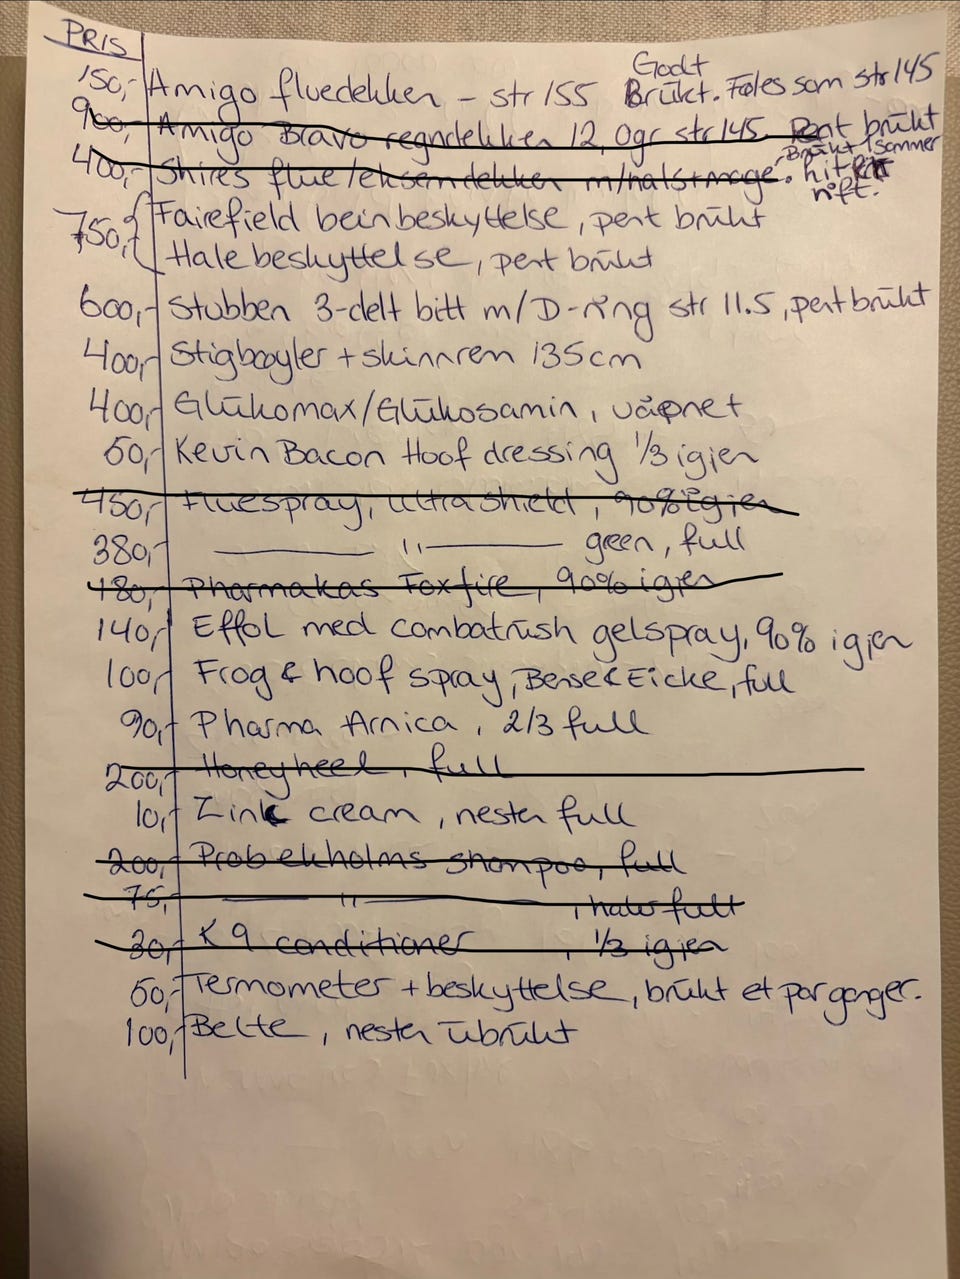 PRIS
150,- Amigo fluedekken - str 155 Godt Brukt. Føles som str 145
900,- Amigo Bravo regndekken 12, 0gr str 145. Pent brukt
400,- Shires flue/eksemdekken m/hals+mage. Brukt 1 sommer, litt rift.
750,- Fairefield beinbeskyttelse, pent brukt
Halebeskyttelse, pent brukt
600,- Stubben 3-delt bitt m/D-ring str 11.5, pent brukt
400,- Stigbøyler + skinnrem 135cm
400,- Glukomax/Glukosamin, uåpnet
50,- Kevin Bacon Hoof dressing 1/3 igjen
450,- Fluespray, Ultrashield, 90% igjen
380,- —— " —— green, full
480,- Pharmakas Foxfire, 90% igjen
140,- Effol med combatrush gelspray, 90% igjen
100,- Frog & hoof spray, Bense & Eicke, full
90,- Pharma Arnica, 2/3 full
200,- Honeyheel, full
10,- Zink cream, nesten full
200,- Prob ekholms shampoo, full
75,- —— " ——, halv full
30,- K9 conditioner, 1/3 igjen
50,- Termometer + beskyttelse, brukt et par ganger.
100,- Belte, nesten ubrukt